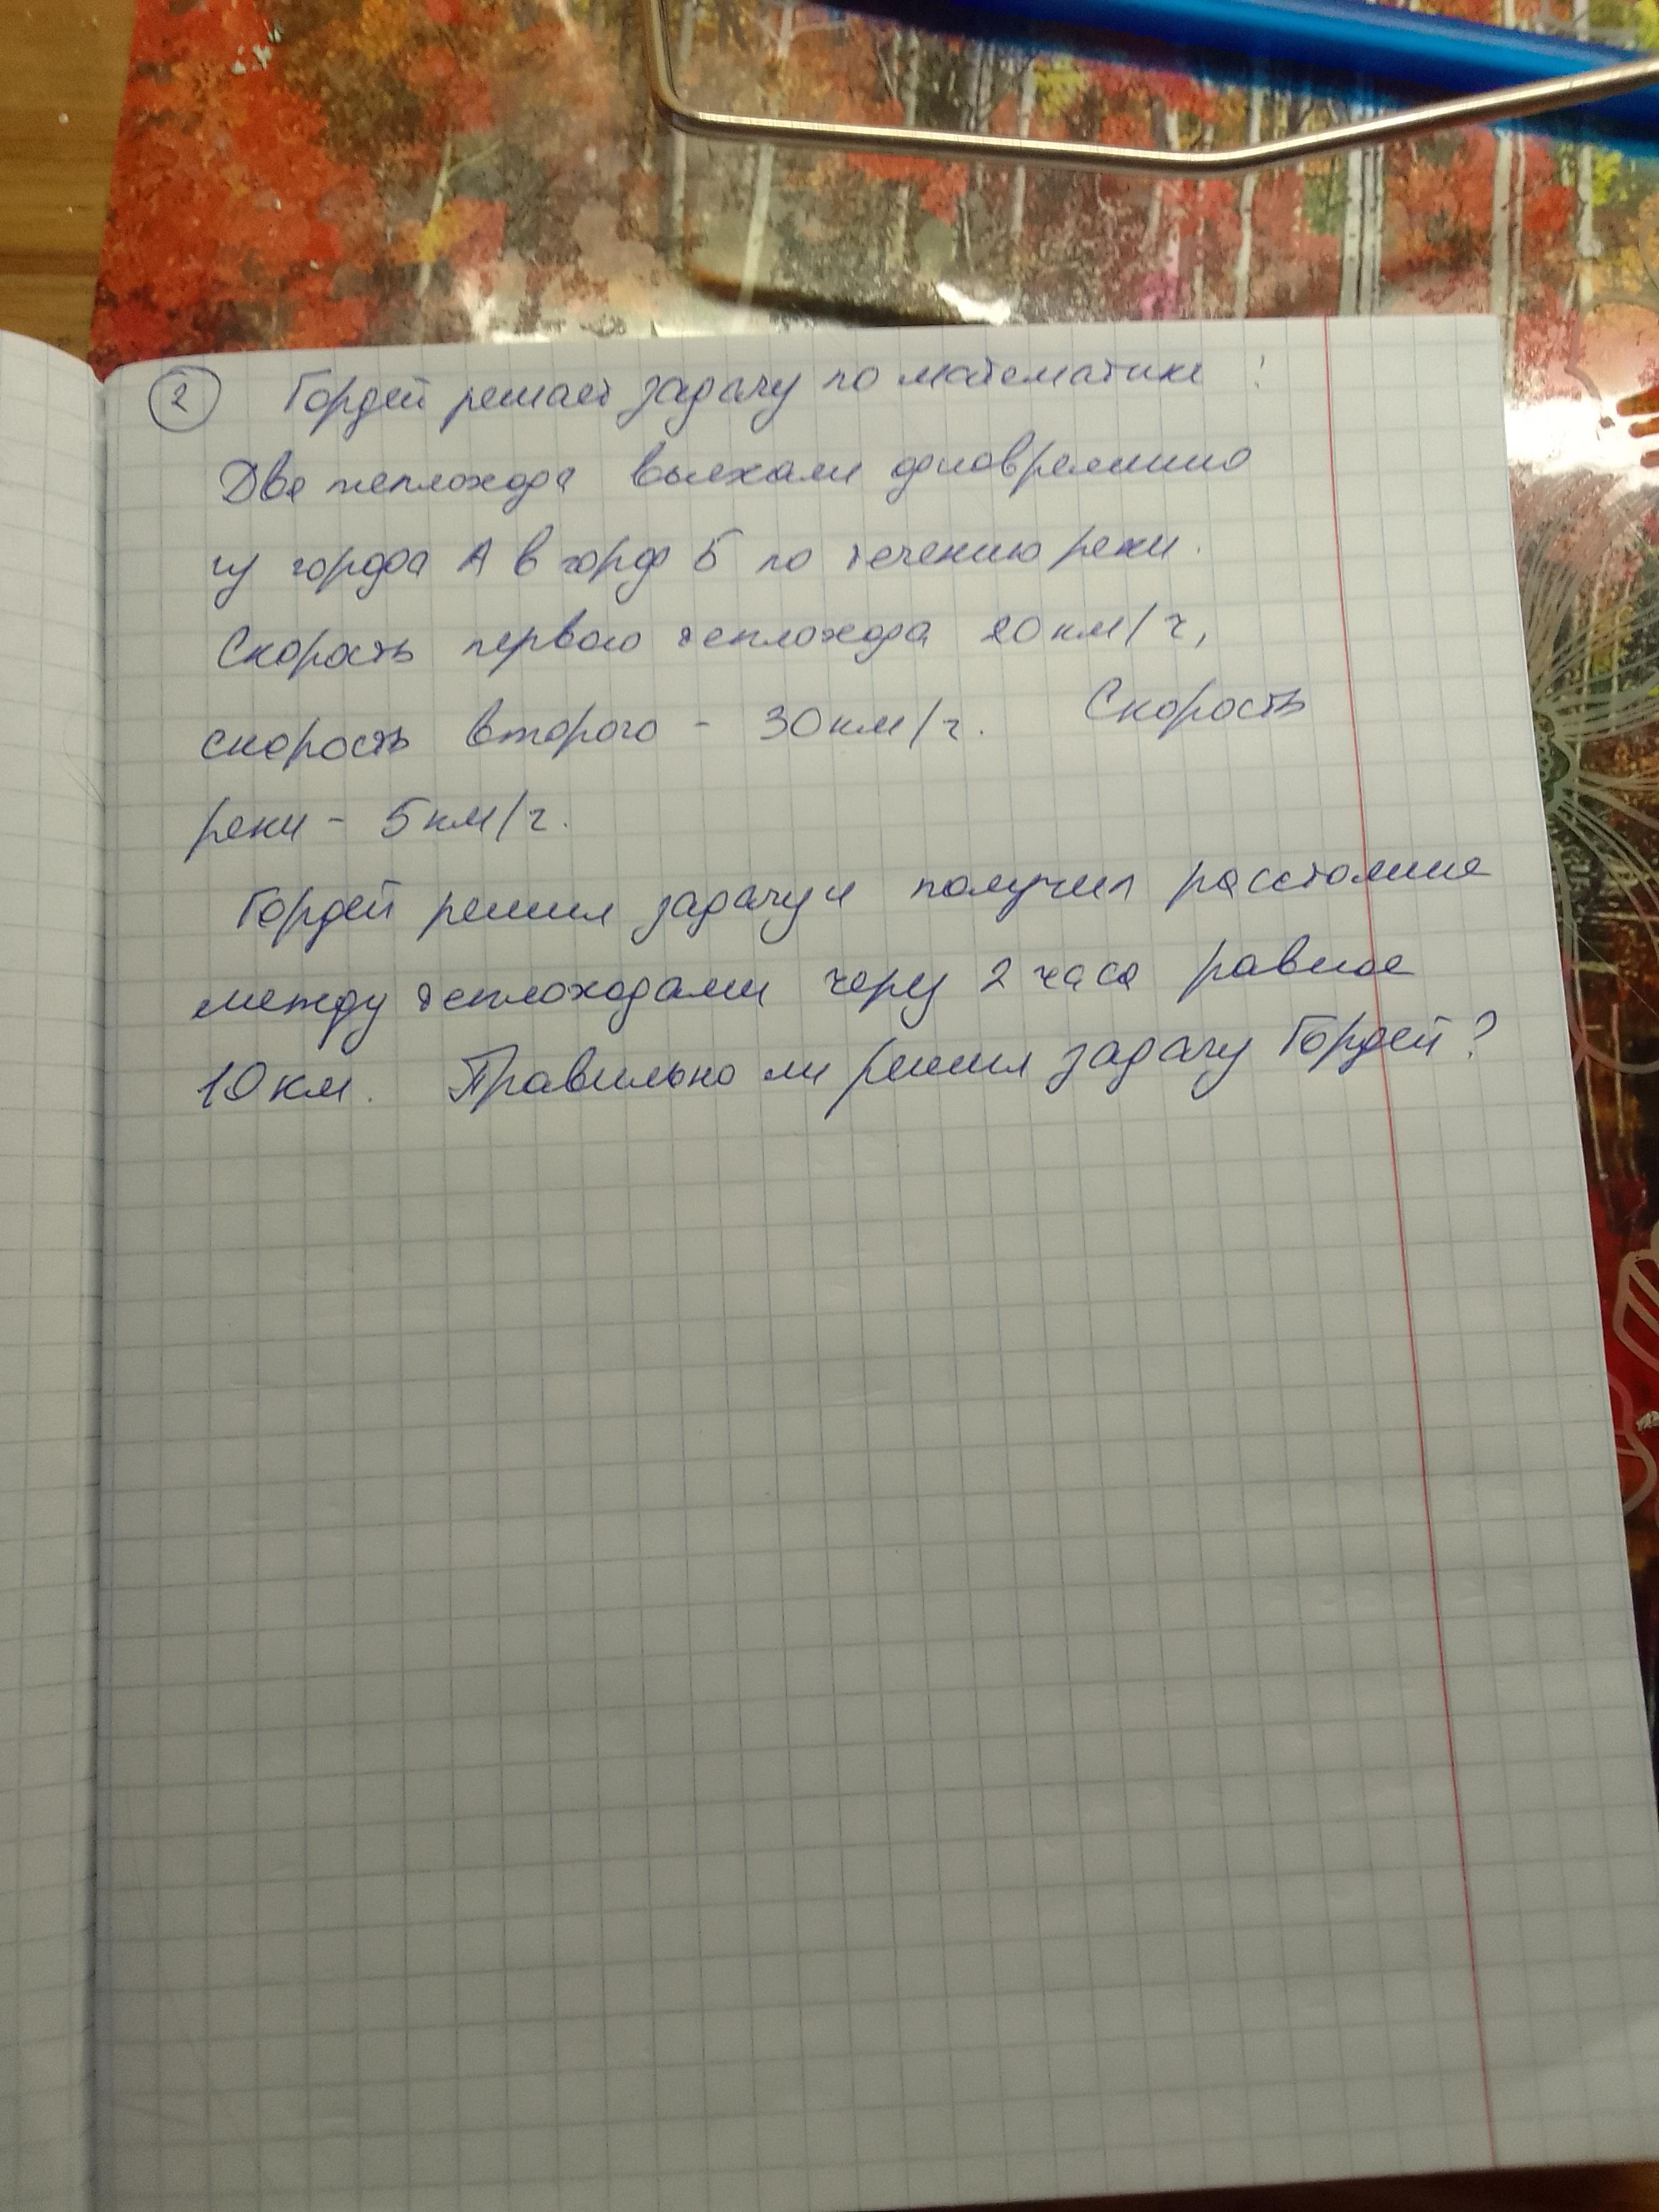 2 Гордей решает задачу по математике:
Два теплохода выехали одновременно
из города А в город Б по течению реки.
Скорость первого теплохода 20 км/ч,
скорость второго - 30 км/ч. Скорость
реки - 5 км/ч.
Гордей решил задачу и получил расстояние
между теплоходами через 2 часа равное
10 км. Правильно ли решил задачу Гордей?